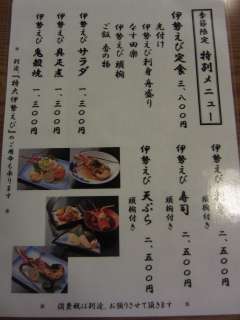 季節限定 特別メニュー
伊勢えび定食 三、八〇〇円
先付け
伊勢えび刺身舟盛り
なす田楽
伊勢えび頭椀
ご飯 香の物
伊勢えび サラダ 一、三〇〇円
伊勢えび 具足煮 一、三〇〇円
伊勢えび 鬼殻焼 一、三〇〇円
※ 別途『特大伊勢えび』のご用命も承ります ※
二、五〇〇円
頭椀付き
伊勢えび 寿司 二、五〇〇円
頭椀付き
伊勢えび 天ぷら 二、五〇〇円
頭椀付き
※ 消費税は別途、お預りさせて頂きます ※